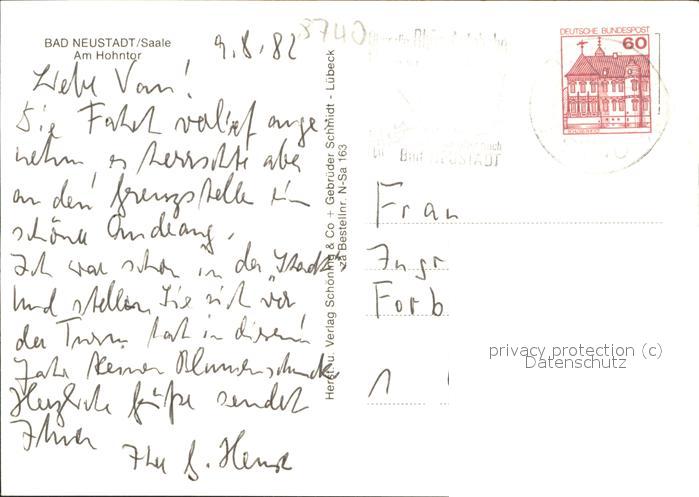 BAD NEUSTADT/Saale
Am Hohntor
9.8.82
8740
Liebe
Die Fahrt verlief ange
nehm, es herrschte aber
an den Grenzstelle ein
schöner Andrang.
Ich war schon in der "Stadt"
und stellen Sie sich vor
der Turm hat in diesem
Jahr keinen Blumenschmuck.
Herzliche Grüße sendet
Ihnen
Ihre
Herst. u. Verlag Schöning & Co + Gebrüder Schmidt - Lübeck
Bestellnr. N-Sa 163
DEUTSCHE BUNDESPOST
60
Bad NEUSTADT
Frau
Ingr
Forb
1
privacy protection (c)
Datenschutz